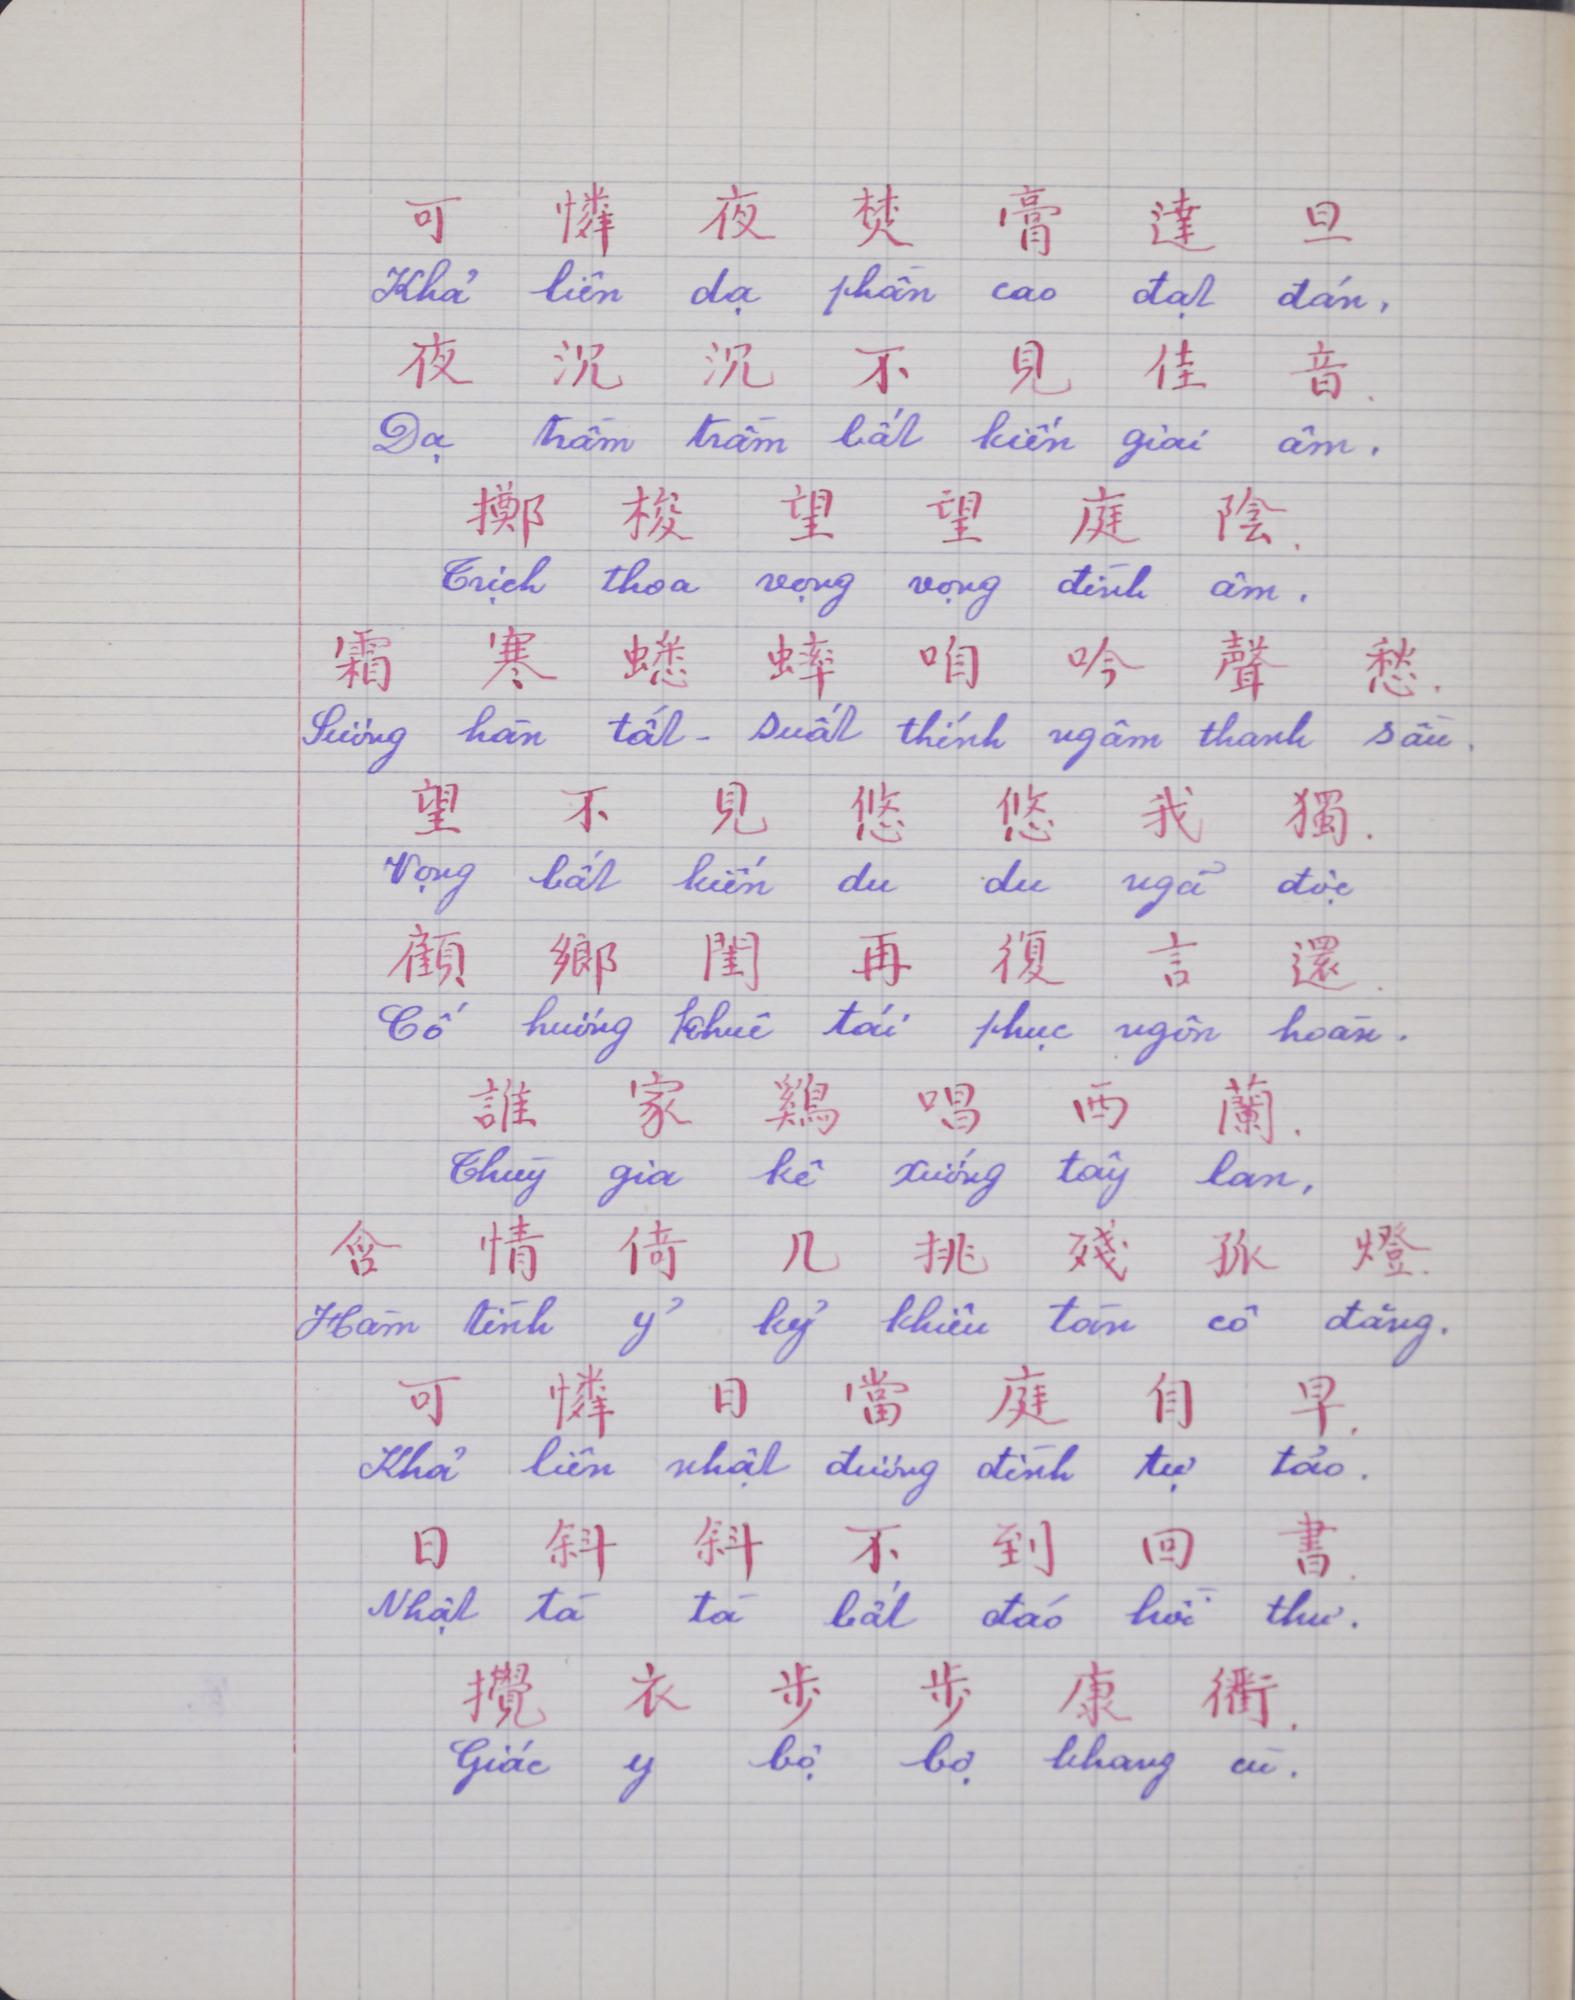 可憐夜焚膏達旦
Khả liên dạ phần cao đạt đán,
夜沉沉不見佳音.
Dạ trầm trầm bất kiến giai âm.
擲梭望望庭陰.
Trịch thoa vọng vọng đình âm.
霜寒蟋蟀咱吟聲愁.
Sương hàn tất-suất thính ngâm thanh sầu.
望不見悠悠我獨.
Vọng bất kiến du du ngã độc
顧鄉閨再復言還.
Cố hương khuê tái phục ngôn hoàn.
誰家鷄唱西蘭.
Thuỳ gia kê xướng tây lan,
含情倚几挑殘孤燈.
Hàm tình ỷ kỷ khiêu tàn cô đăng.
可憐日當庭自早.
Khả liên nhật đương đình tự tảo.
日斜斜不到回書.
Nhật tà tà bất đáo hồi thư.
攪衣步步康衢.
Giác y bộ bộ khang cù.